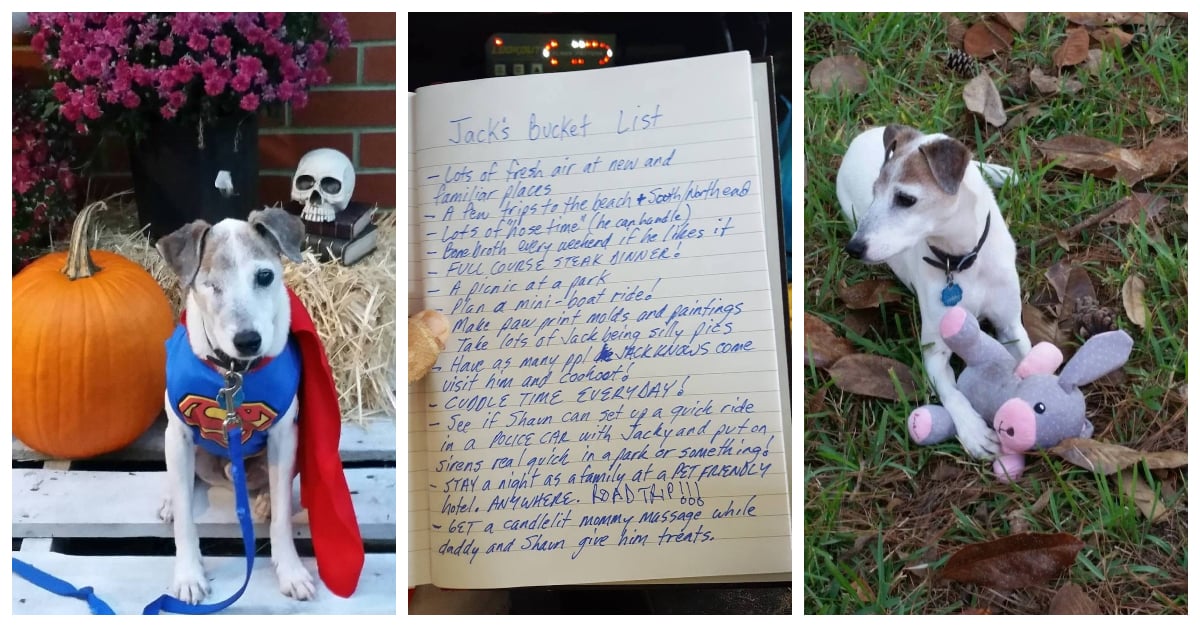 Jack's Bucket List
- Lots of fresh air at new and
familiar places
- A few trips to the beach + South/North end
- Lots of "nose time" (he can handle)
- Bone broth every weekend if he likes it
- FULL COURSE STEAK DINNER!
- A picnic at a park
- Plan a mini-boat ride!
- Make paw print molds and paintings
- Take lots of Jack being silly pics
- Have as many ppl JACK KNOWS come
visit him and cookout!
- CUDDLE TIME EVERYDAY!
- See if Shaun can set up a quick ride
in a POLICE CAR with Jacky and put on
sirens real quick in a park or something!
- STAY a night as a family at a PET FRIENDLY
hotel. ANYWHERE. ROAD TRIP!!!
- GET a candlelit mommy massage while
daddy and Shaun give him treats.